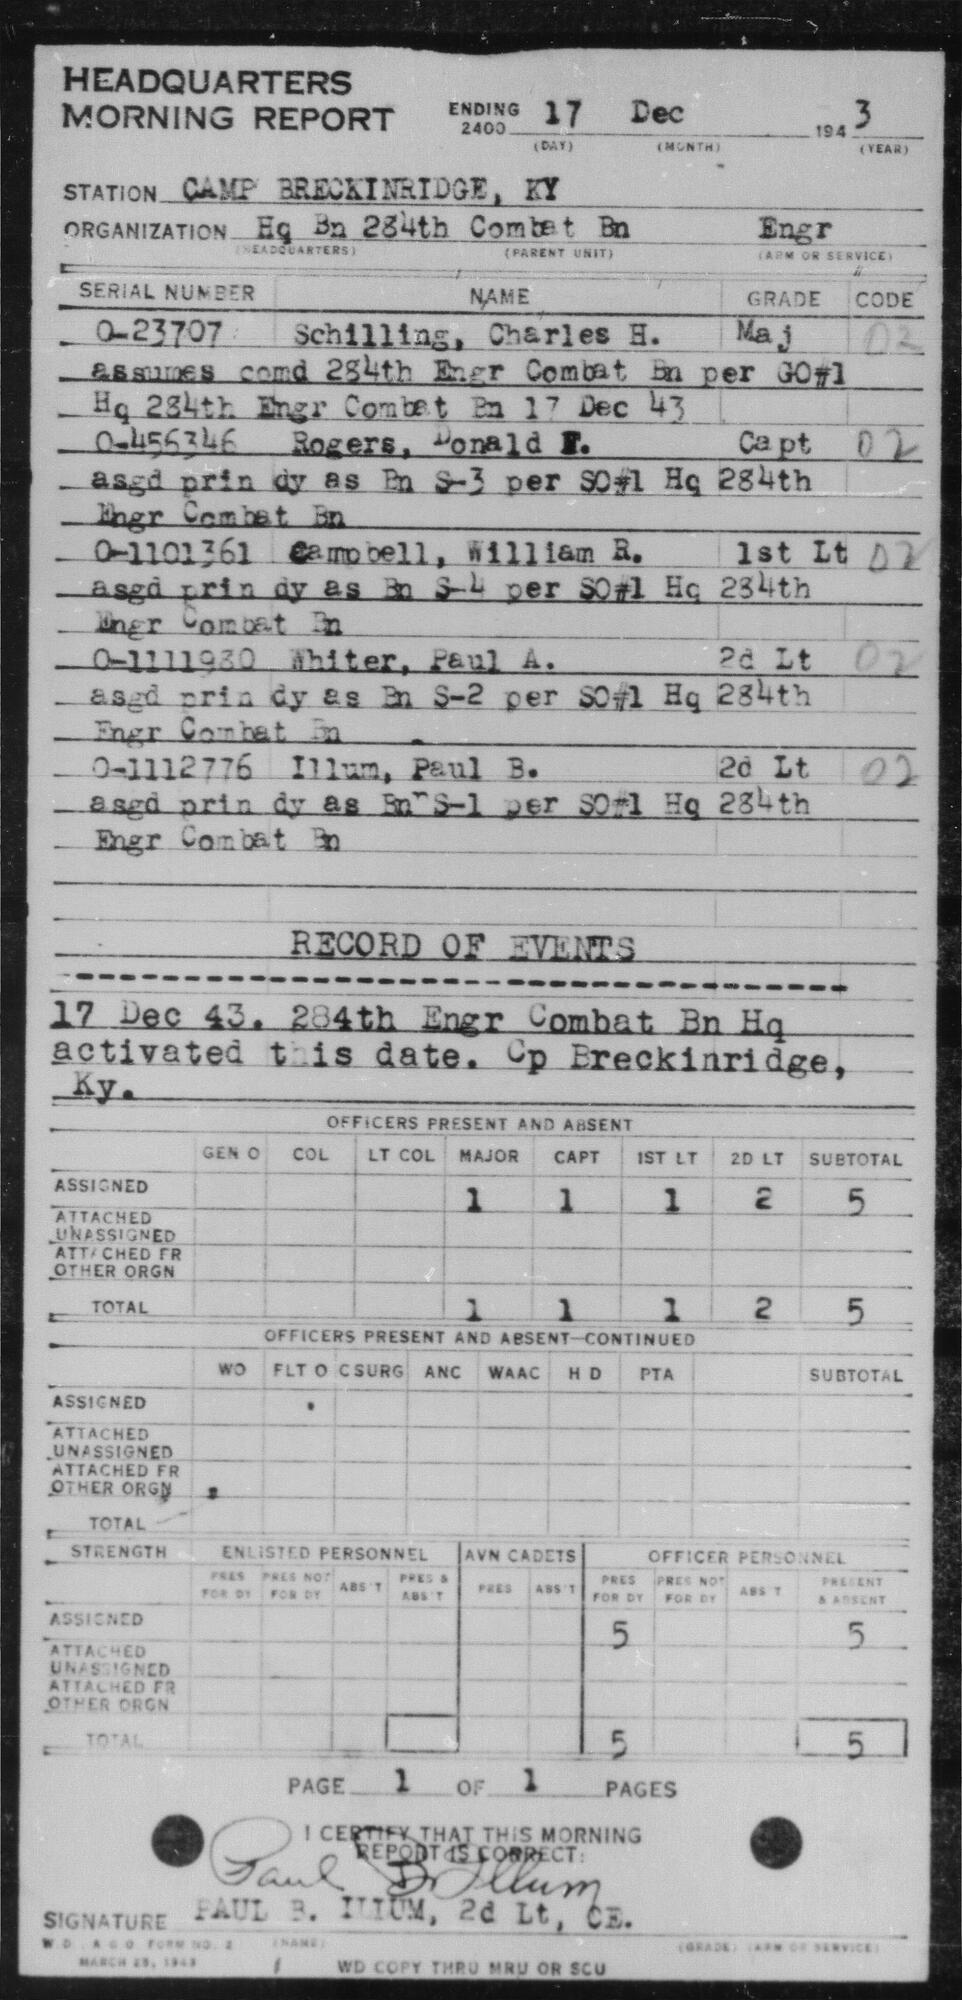 HEADQUARTERS
MORNING REPORT ENDING 2400 17 Dec 194 3
(DAY) (MONTH) (YEAR)
STATION CAMP BRECKINRIDGE, KY
ORGANIZATION Hq Bn 284th Combat Bn Engr
(HEADQUARTERS) (PARENT UNIT) (ARM OR SERVICE)
SERIAL NUMBER NAME GRADE CODE
O-23707 Schilling, Charles H. Maj 02
assumes comd 284th Engr Combat Bn per GO#1
Hq 284th Engr Combat Bn 17 Dec 43
O-456346 Rogers, Donald F. Capt 02
asgd prin dy as Bn S-3 per SO#1 Hq 284th
Engr Combat Bn
O-1101361 Campbell, William R. 1st Lt 02
asgd prin dy as Bn S-4 per SO#1 Hq 284th
Engr Combat Bn
O-1111980 Whiter, Paul A. 2d Lt 02
asgd prin dy as Bn S-2 per SO#1 Hq 284th
Engr Combat Bn
O-1112776 Illum, Paul B. 2d Lt 02
asgd prin dy as Bn S-1 per SO#1 Hq 284th
Engr Combat Bn
RECORD OF EVENTS
17 Dec 43. 284th Engr Combat Bn Hq
activated this date. Cp Breckinridge,
Ky.
OFFICERS PRESENT AND ABSENT
GEN O COL LT COL MAJOR CAPT 1ST LT 2D LT SUBTOTAL
ASSIGNED 1 1 1 2 5
ATTACHED
UNASSIGNED
ATTACHED FR
OTHER ORGN
TOTAL 1 1 1 2 5
OFFICERS PRESENT AND ABSENT—CONTINUED
WO FLT O C SURG ANC WAAC H D PTA SUBTOTAL
ASSIGNED
ATTACHED
UNASSIGNED
ATTACHED FR
OTHER ORGN
TOTAL
STRENGTH ENLISTED PERSONNEL AVN CADETS OFFICER PERSONNEL
PRES FOR DY PRES NOT FOR DY ABS'T PRES & ABS'T PRES ABS'T PRES FOR DY PRES NOT FOR DY ABS'T PRESENT & ABSENT
ASSIGNED 5 5
ATTACHED
UNASSIGNED
ATTACHED FR
OTHER ORGN
TOTAL 5 5
PAGE 1 OF 1 PAGES
I CERTIFY THAT THIS MORNING
REPORT IS CORRECT:
Paul B Illum
SIGNATURE PAUL B. ILlUM, 2d Lt, CE.
W. D., A. G. O. FORM NO. 2 (NAME) (GRADE) (ARM OR SERVICE)
MARCH 25, 1943 1 WD COPY THRU MRU OR SCU